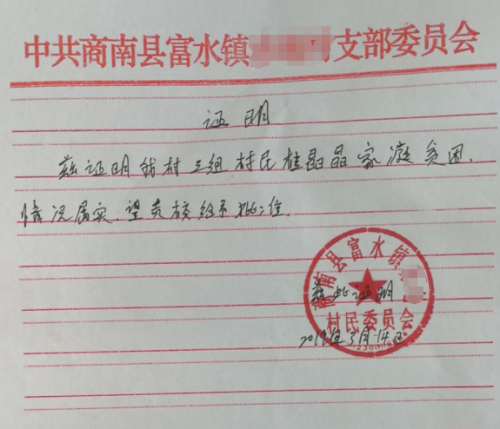 中共商南县富水镇 支部委员会
证明
兹证明我村三组村民桂晶晶家庭贫困.
情况属实.望贵校给予批准.
商南县富水镇
特此证明.
村民委员会
年3月14日